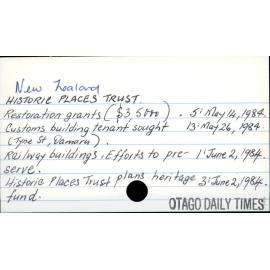 New Zealand
HISTORIC PLACES TRUST.
Restoration grants ($3,5000) . 5: May 14, 1984.
Customs building tenant sought 13: May 26, 1984.
(Tyne St, Oamaru) .
Railway buildings, Efforts to pre- 1: June 2, 1984.
serve.
Historic Places Trust plans heritage 3: June 2, 1984.
fund.
OTAGO DAILY TIMES